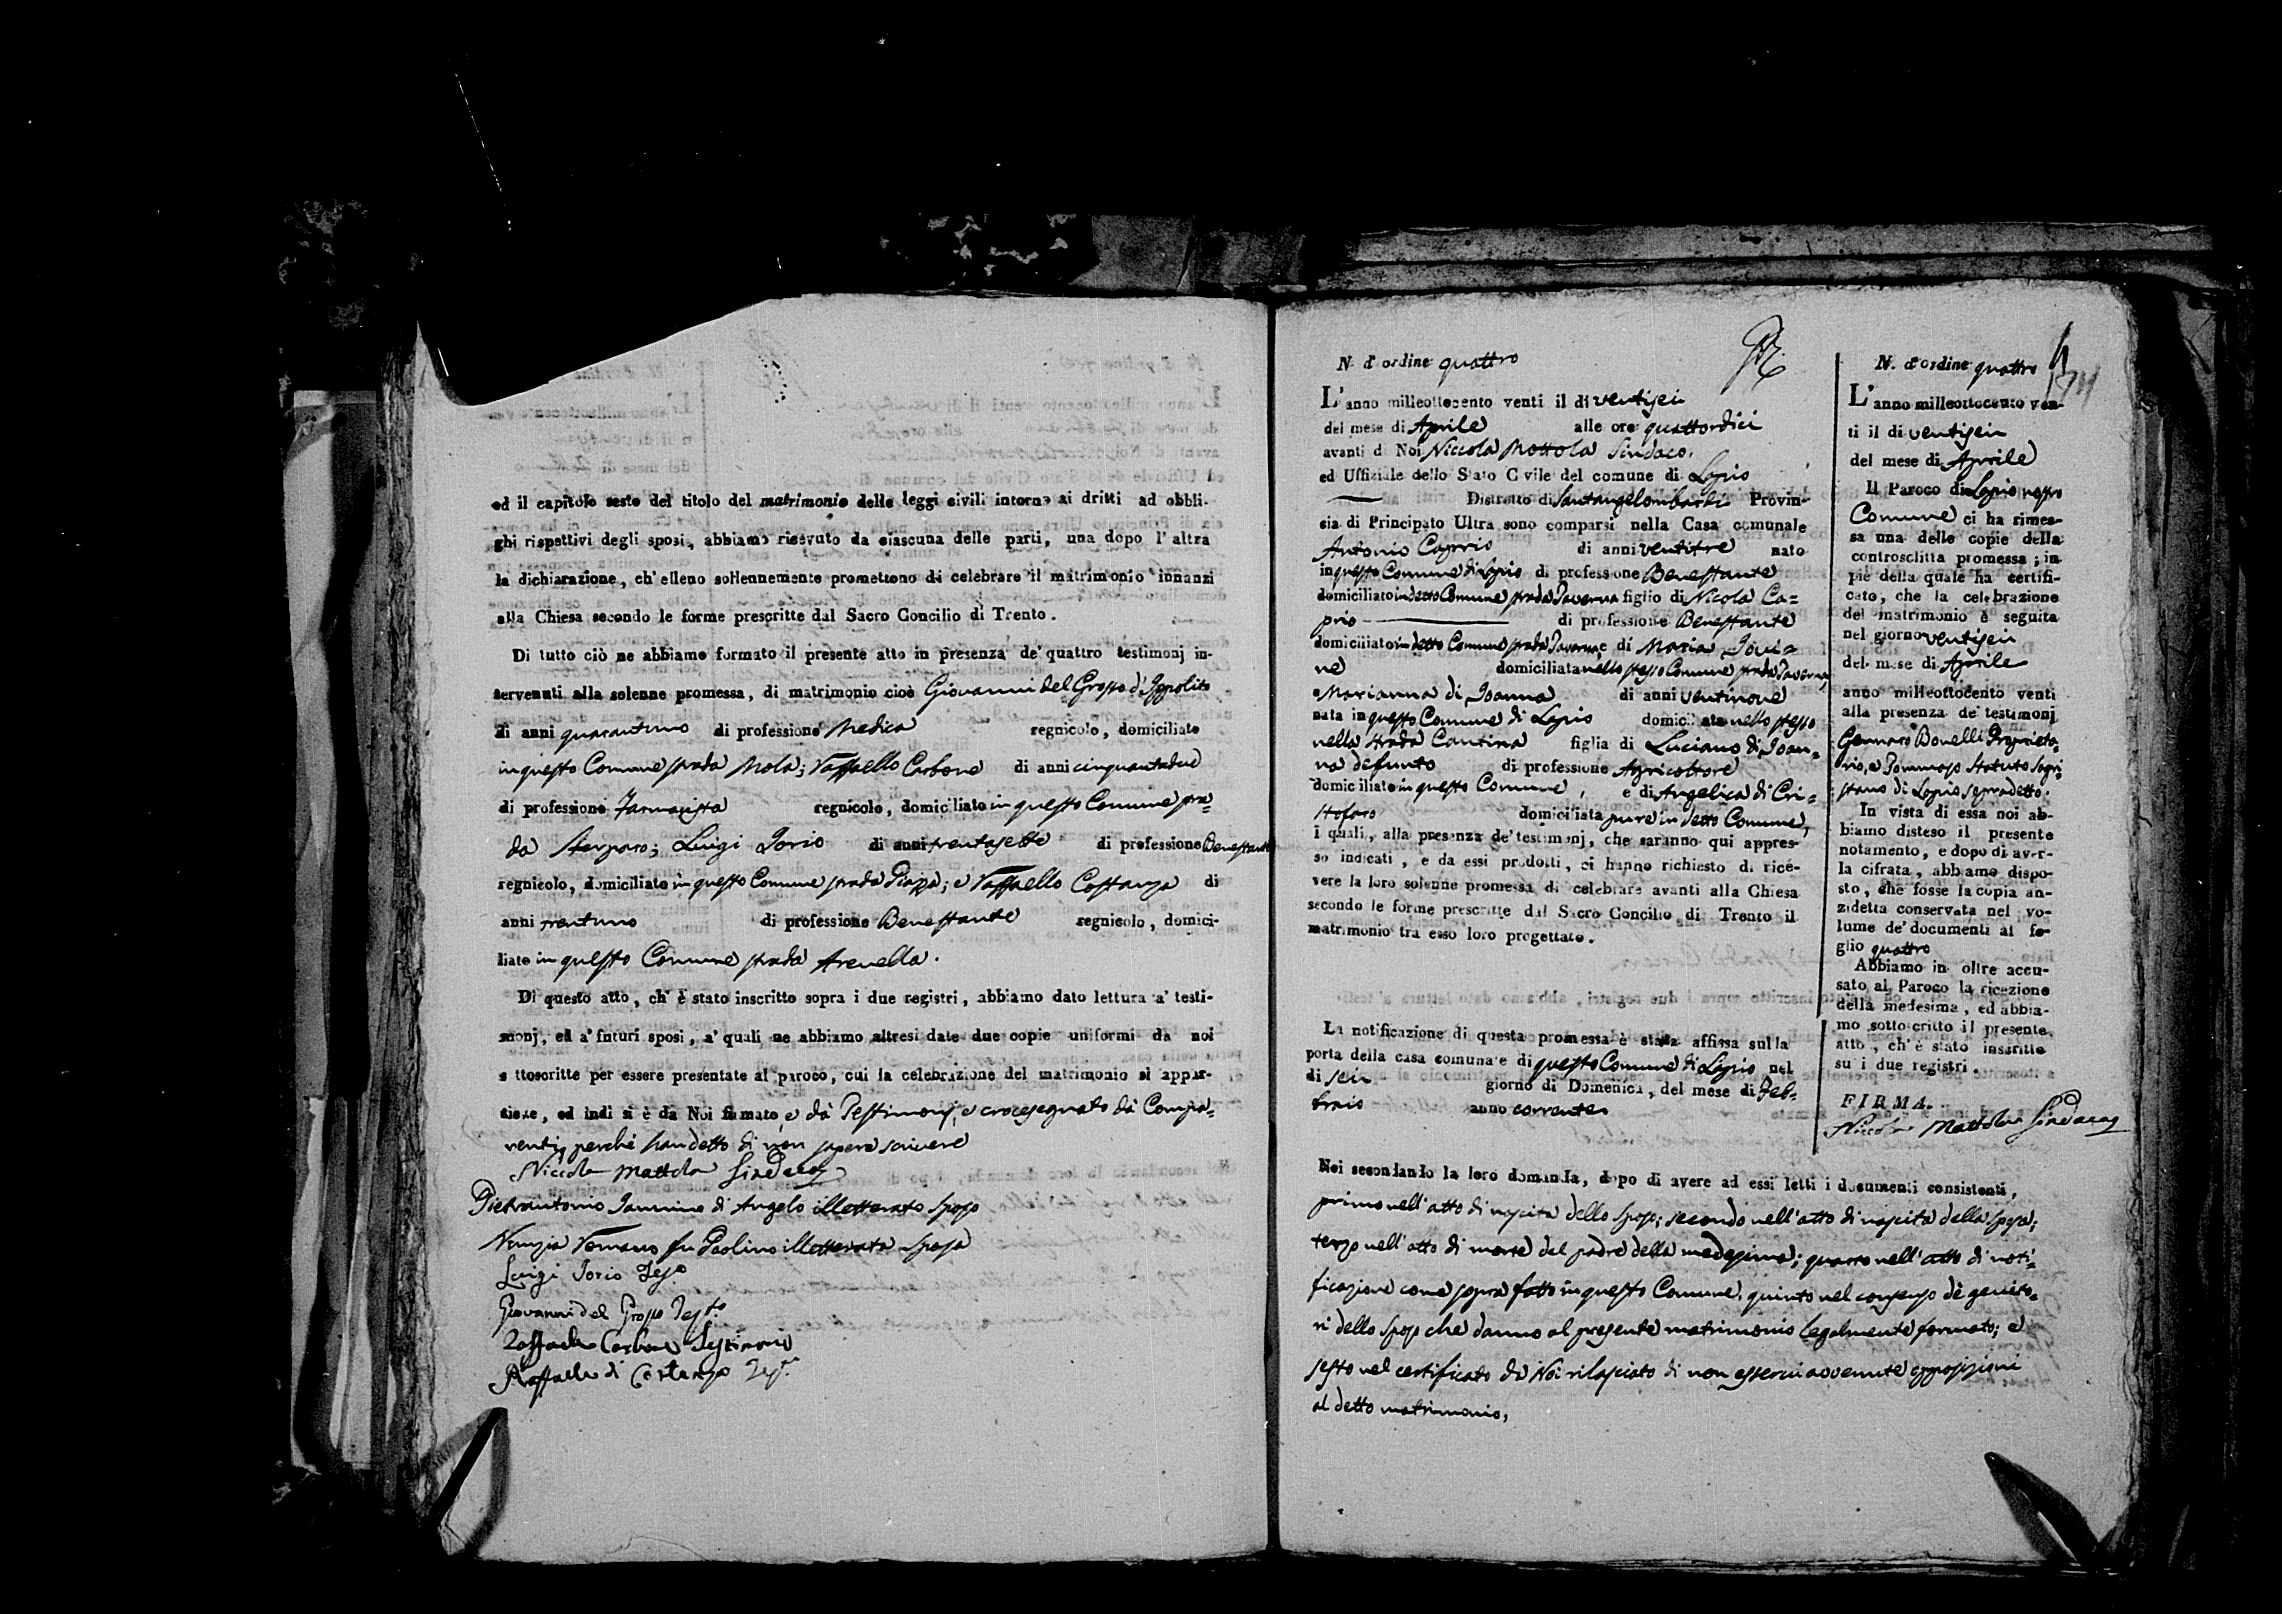 ed il capitolo sesto del titolo del matrimonio delle leggi civili intorno ai dritti ad obbli-
ghi rispettivi degli sposi, abbiamo ricevuto da ciascuna delle parti, una dopo l'altra
la dichiarazione, ch'elleno sollennemente promettono di celebrare il matrimonio innanzi
alla Chiesa secondo le forme prescritte dal Sacro Concilio di Trento.
Di tutto ciò ne abbiamo formato il presente atto in presenza de' quattro testimonj in-
tervenuti alla solenne promessa, di matrimonio cioè Giovanni del Grosso d'Ippolito
di anni quarantuno di professione Medico regnicolo, domiciliato
in questo Comune strada Mola; Raffaello Carbone di anni cinquantadue
di professione Farmacista regnicolo, domiciliato in questo Comune stra=
da Luigi Iorio di anni trentasette di professione Benestante
regnicolo, domiciliato in questo Comune strada Piazza; e Raffaello Costanza di
anni trentuno di professione Benestante regnicolo, domici-
liato in questo Comune strada Arenella.
Di questo atto, ch'è stato inscritto sopra i due registri, abbiamo dato lettura a' testi-
monj, ed a' futuri sposi, a' quali ne abbiamo altresì date due copie uniformi da noi
sottoscritte per essere presentate al paroco, cui la celebrazione del matrimonio si appar-
tiene, ed indi si è da Noi firmato e da Testimonj, e crocesegnato da Compa=
renti, perchè han detto di non sapere scrivere
Niccola Mottola Sindaco
Pietrantonio Iannino di Angelo illetterato Sposo
Nunzia Romano fu Paolino illetterata Sposa
Luigi Iorio Tes.o
Giovanni del Grosso Test.o
Raffaele Carbone Testimonio
Raffaele di Costanzo Tes.o
N. d'ordine quattro
L'anno milleottocento venti il di ventisei
del mese di Aprile alle ore quattordici
avanti di Noi Niccola Mottola Sindaco,
ed Uffiziale dello Stato Civile del comune di Lapio
Distretto di Santangelombardi Provin-
cia di Principato Ultra sono comparsi nella Casa comunale
Antonio Caprio di anni ventitre nato
in questo Comune di Lapio di professione Benestante
domiciliato in detto Comune strada Taverna figlio di Nicola Ca=
prio di professione Benestante
domiciliato in detto Comune strada Taverna e di Maria Iovi=
ne domiciliata nello stesso Comune strada Taverna
e Marianna di Ioanna di anni ventinove
nata in questo Comune di Lapio domiciliata nello stesso
nella strada Cantina figlia di Luciano di Ioan=
na defunto di professione Agricoltore
domiciliato in questo Comune, e di Angelica di Cri=
stofaro domiciliata pure in detto Comune,
i quali, alla presenza de' testimonj, che saranno qui appres-
so indicati, e da essi prodotti, ci hanno richiesto di rice-
vere la loro solenne promessa di celebrare avanti alla Chiesa
secondo le forme prescritte dal Sacro Concilio di Trento il
matrimonio tra esso loro progettato.
La notificazione di questa promessa è stata affissa sulla
porta della casa comunale di questo Comune di Lapio nel
di sei giorno di Domenica, del mese di Feb=
braio anno corrente
Noi secondando la loro domanda, dopo di avere ad essi letti i documenti consistenti,
primo nell'atto di nascita dello Sposo; secondo nell'atto di nascita della Sposa;
terzo nell'atto di morte del padre della medesima; quarto nell'atto di noti=
ficazione come sopra fatto in questo Comune, quinto nel consenso de' genito=
ri dello Sposo che danno al presente matrimonio legalmente formato; e
sesto nel certificato da Noi rilasciato di non esserci avvenute opposizioni
al detto matrimonio,
N. d'ordine quattro
L'anno milleottocento ven-
ti il di ventisei
del mese di Aprile
Il Paroco di Lapio nostro
Comune ci ha rimes-
sa una delle copie della
controscritta promessa; in
piè della quale ha certifi-
cato, che la celebrazione
del matrimonio è seguita
nel giorno ventisei
del mese di Aprile
anno milleottocento venti
alla presenza de' testimonj
Gennaro Bonelli Proprieta=
rio, e Tommaso Statuto Sagri=
stano di Lapio sepradetto.
In vista di essa noi ab-
biamo disteso il presente
notamento, e dopo di aver-
la cifrata, abbiamo dispo-
sto, che fosse la copia an-
zidetta conservata nel vo-
lume de' documenti al fo-
glio quattro
Abbiamo in oltre accu-
sato al Paroco la ricezione
della medesima, ed abbia-
mo sottoscritto il presente
atto, ch'è stato inscritto
su i due registri.
FIRMA.
Niccola Mottola Sindaco